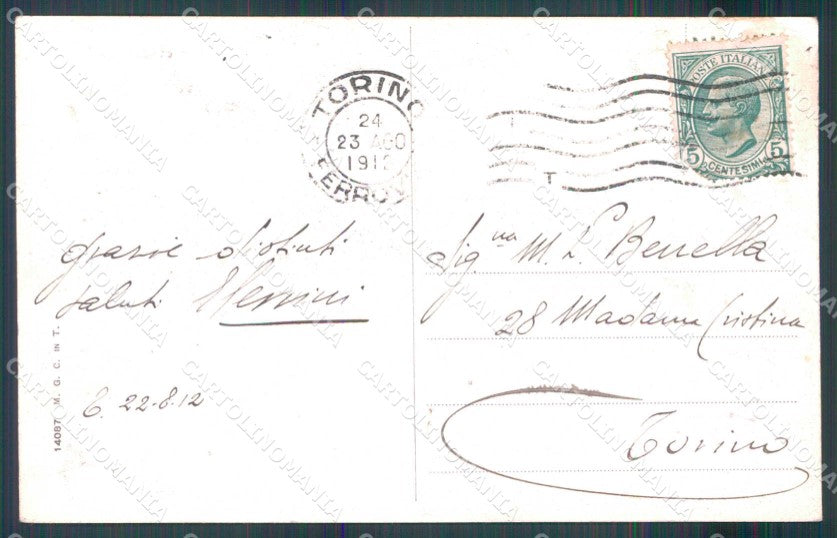 TORINO
24
23 AGO
1912
FERROV
T
POSTE ITALIANE
5 CENTESIMI 5
grazie distinti
saluti
6. 22-8.12
14087 M. G. C. IN T.
Sig.na M. L. Benella
28 Madama Cristina
Torino
CARTOLINOMANIA